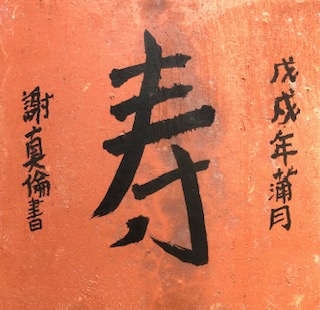 戊戌年蒲月
寿
謝真倫書